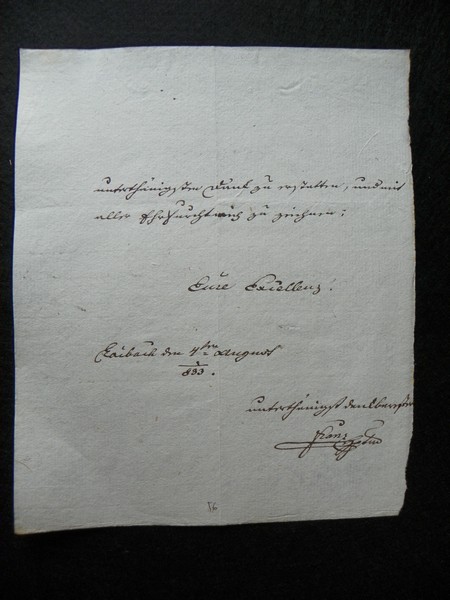 unterthänigsten Dank zu erstatten, und mit
aller Ehrfurcht mich zu zeichnen:
Eure Excellenz!
Laibach den 4ten August
833.
unterthänigst dankbarster
Franz
16